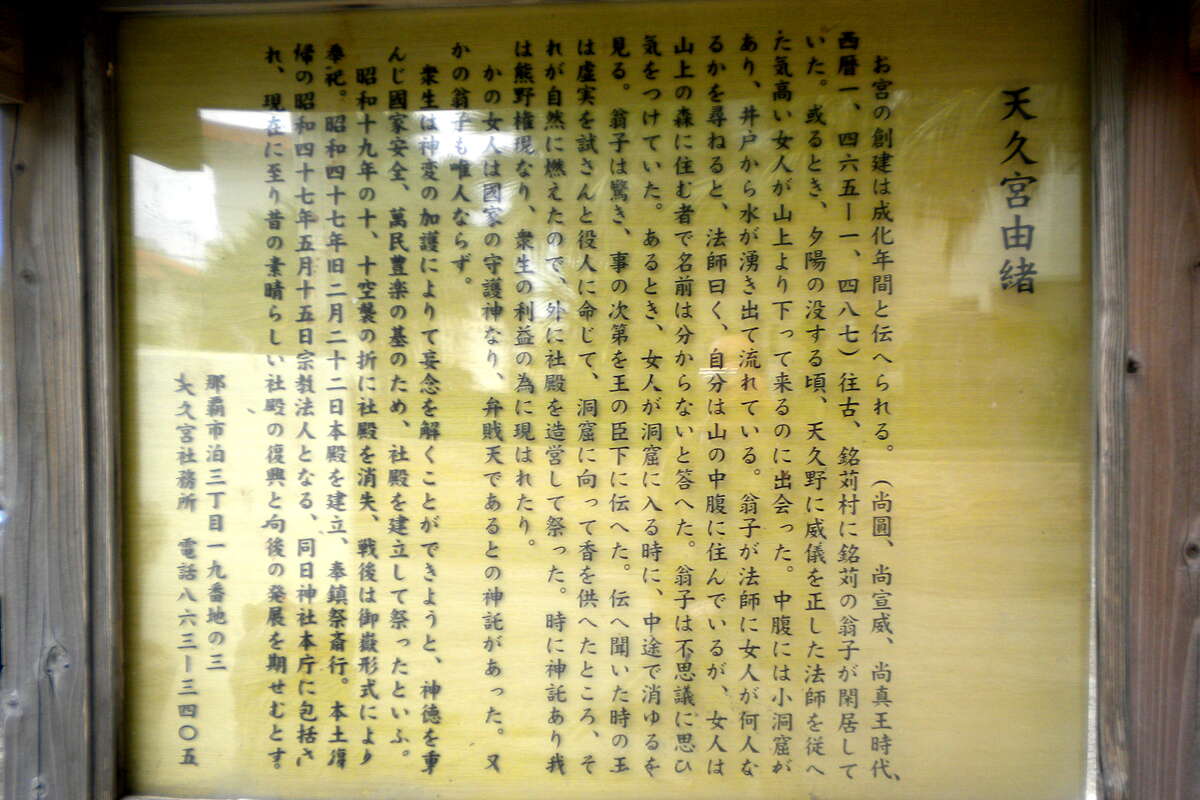 天久宮由緒
お宮の創建は成化年間と伝へられる。（尚圓、尚宣威、尚真王時代、
西暦一、四六五ー一、四八七）往古、銘苅村に銘苅の翁子が閑居して
いた。或るとき、夕陽の没する頃、天久野に威儀を正した法師を従へ
た気高い女人が山上より下って来るのに出会った。中腹には小洞窟が
あり、井戸から水が湧き出て流れている。翁子が法師に女人が何人な
るかを尋ねると、法師曰く、自分は山の中腹に住んでいるが、女人は
山上の森に住む者で名前は分からないと答へた。翁子は不思議に思ひ
気をつけていた。あるとき、女人が洞窟に入る時に、中途で消ゆるを
見る。翁子は驚き、事の次第を王の臣下に伝へた。伝へ聞いた時の王
は虚実を試さんと役人に命じて、洞窟に向って香を供へたところ、そ
れが自然に燃えたので、外に社殿を造営して祭った。時に神託あり我
は熊野権現なり、衆生の利益の為に現はれたり。
かの女人は國家の守護神なり、弁財天であるとの神託があった。又
かの翁子も唯人ならず。
衆生は神変の加護によりて妄念を解くことができようと、神徳を重
んじ國家安全、萬民豊楽の基のため、社殿を建立して祭ったといふ。
昭和十九年の十、十空襲の折に社殿を消失、戦後は御嶽形式により
奉祀。昭和四十七年旧二月二十二日本殿を建立、奉鎮祭斎行。本土復
帰の昭和四十七年五月十五日宗教法人となる、同日神社本庁に包括さ
れ、現在に至り昔の素晴らしい社殿の復興と向後の発展を期せむとす。
那覇市泊三丁目一九番地の三
天久宮社務所　電話八六三ー三四〇五